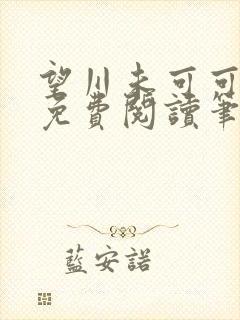 望川未可可
免費閱讀筆
藍安諾